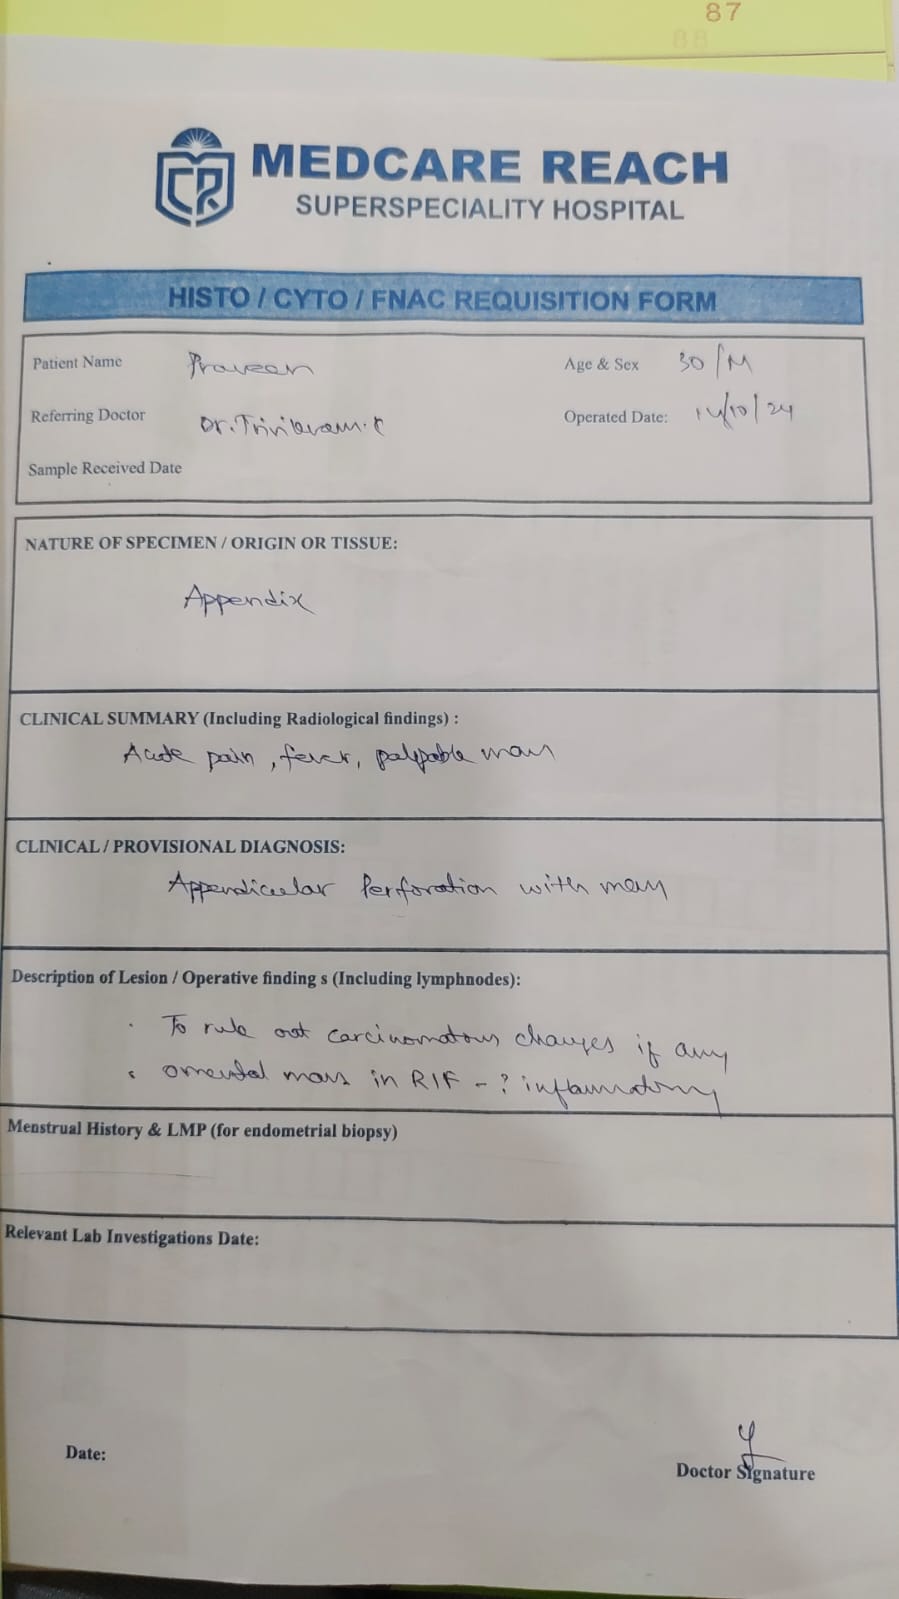 87
88
MEDCARE REACH
SUPERSPECIALITY HOSPITAL
HISTO / CYTO / FNAC REQUISITION FORM
Patient Name Praveen Age & Sex 30/M
Referring Doctor Dr. Trivikram. Operated Date: 14/10/24
Sample Received Date
NATURE OF SPECIMEN / ORIGIN OR TISSUE:
Appendix
CLINICAL SUMMARY (Including Radiological findings) :
Acute pain, fever, palpable mass
CLINICAL / PROVISIONAL DIAGNOSIS:
Appendicular Perforation with mass
Description of Lesion / Operative finding s (Including lymphnodes):
· To rule out carcinomatous changes if any
· omental mass in RIF - ? inflammatory
Menstrual History & LMP (for endometrial biopsy)
Relevant Lab Investigations Date:
Date:
Doctor Signature